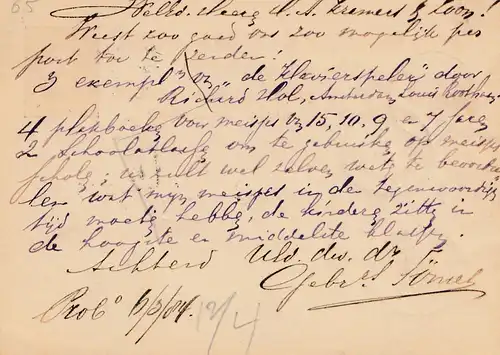 65
Weled. Heeren H. A. Kramers & Zoon!
Weest zoo goed ons zoo mogelijk per
post toe te zenden:
3 exempl. v/ „de Klavierspeler" door
Richard Hol, Amsterdam, Louis Roothaan
4 plakboeken voor meisjes v/ 15, 10, 9 en 7 jaren
2 Schoolatlassen om te gebruiken op meisjes
scholen; u zult wel zelven weten te beoordee
len wat mijn meisjes in den tegenwoordigen
tijd moeten hebben, de kinderen zitten in
de hoogste en middelste klassen.
Achtend Uld. dw. dr.
Gebrs
Probo 6/3/84.
12/4